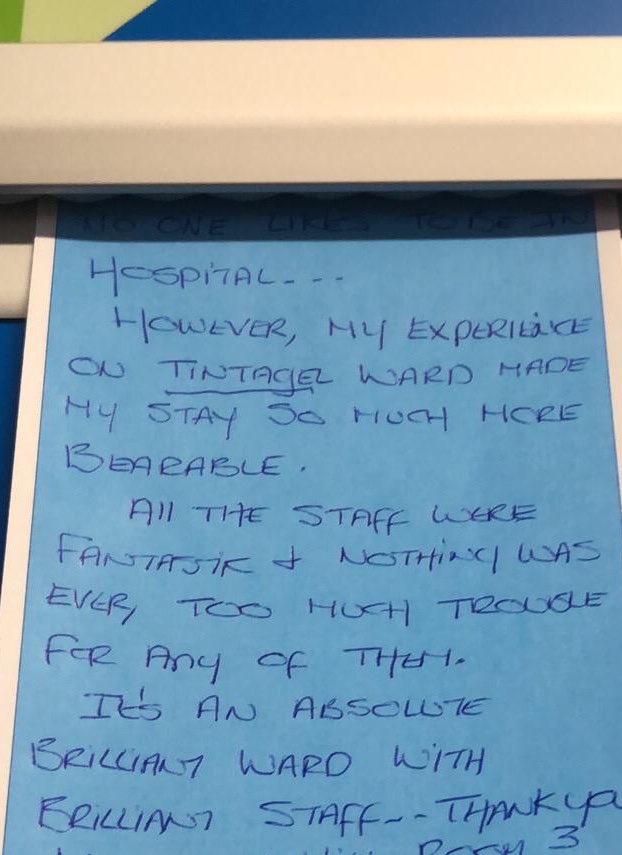 NO ONE LIKES TO BE IN
HOSPITAL---
HOWEVER, MY EXPERIENCE
ON TINTAGEL WARD MADE
MY STAY SO MUCH MORE
BEARABLE.
All THE STAFF WERE
FANTASTIK & NOTHING WAS
EVER, TOO MUCH TROUBLE
FOR ANY OF THEM.
IT'S AN ABSOLUTE
BRILLIANT WARD WITH
BRILLIANT STAFF--THANK
ROOM 3